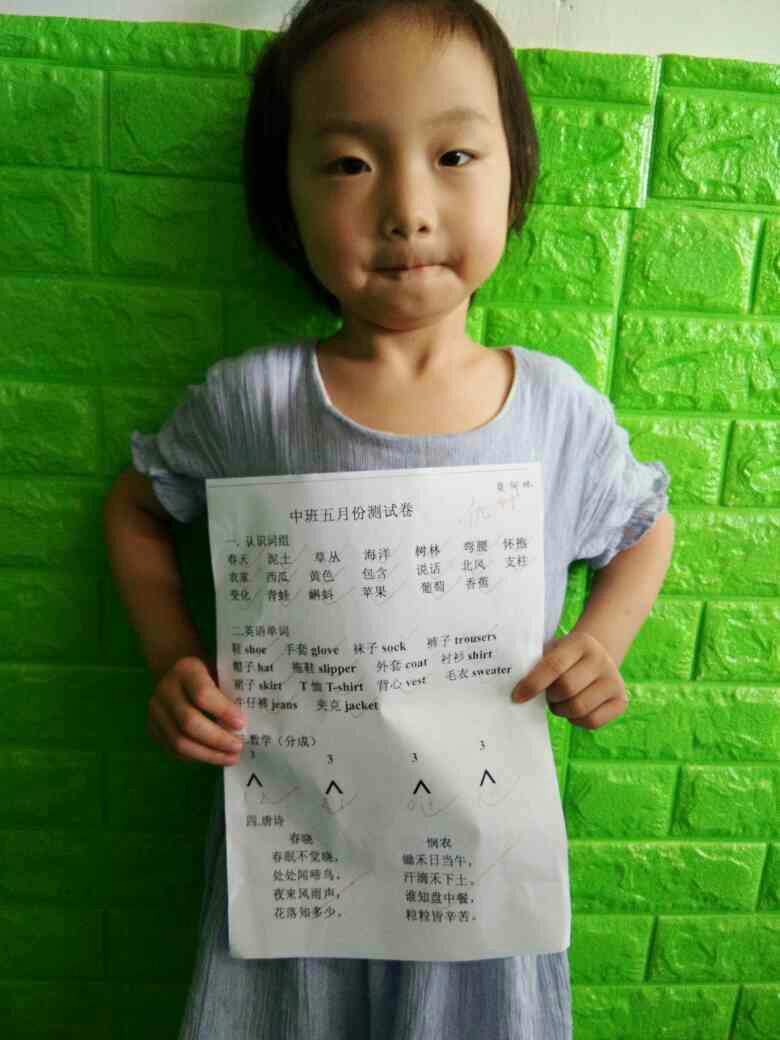 中班五月份测试卷
一. 认识词组
春天 泥土 草丛 海洋 树林 弯腰 怀抱
农家 西瓜 黄色 包含 说话 北风 支柱
变化 青蛙 蝌蚪 苹果 葡萄 香蕉
二.英语单词
鞋 shoe 手套 glove 袜子 sock 裤子 trousers
帽子 hat 拖鞋 slipper 外套 coat 衬衫 shirt
裙子 skirt T 恤 T-shirt 背心 vest 毛衣 sweater
牛仔裤 jeans 夹克 jacket
三.数学（分成）
3 3 3 3
四.唐诗
春晓 悯农
春眠不觉晓， 锄禾日当午，
处处闻啼鸟。 汗滴禾下土。
夜来风雨声， 谁知盘中餐，
花落知多少。 粒粒皆辛苦。